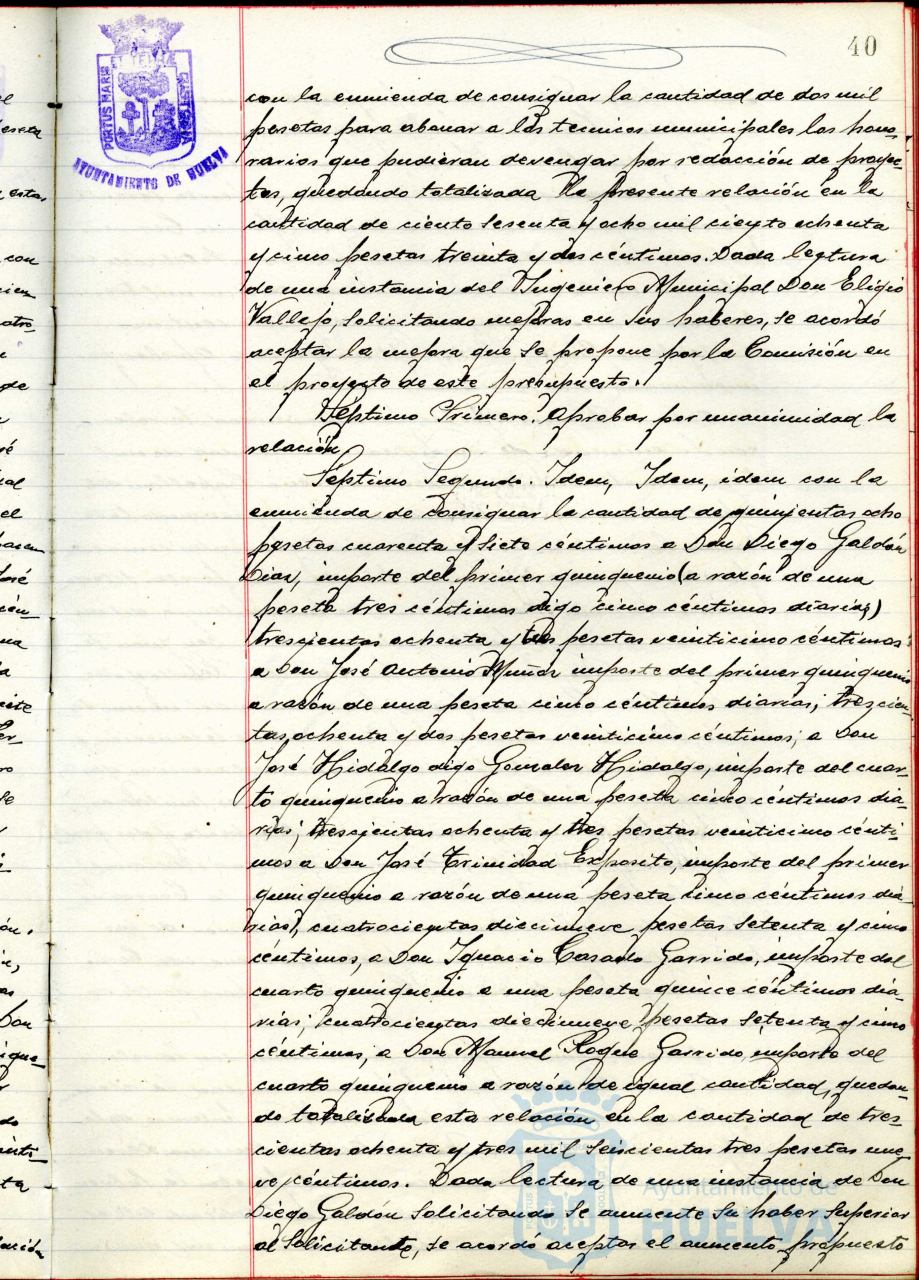 40
PORTUS MARIS
ET TERRÆ
CUSTODIA
AYUNTAMIENTO DE HUELVA
con la enmienda de consignar la cantidad de dos mil
pesetas para abonar a los tecnicos municipales los hono-
rarios que pudieran devengar por redacción de proyec-
tos, quedando totalizada la presente relación en la
cantidad de ciento sesenta y ocho mil ciento ochenta
y cinco pesetas treinta y dos céntimos. Dada lectura
de una instancia del Ingeniero Municipal Don Eligio
Vallejo, solicitando mejoras en sus haberes, se acordó
aceptar la mejora que se propone por la Comisión en
el proyecto de este presupuesto.
Séptimo Primero. Aprobar por unanimidad la
relación
Séptimo Segundo. Idem, Idem, idem con la
enmienda de consignar la cantidad de quinientas ocho
pesetas cuarenta y siete céntimos a Don Diego Galdón
Dias, importe del primer quinquenio (a razón de una
peseta tres céntimos digo cinco céntimos diarias)
trescientas ochenta y tres pesetas veinticinco céntimos
a Don José Antonio Muñoz importe del primer quinquenio
a razón de una peseta cinco céntimos diarias; trescien-
tas ochenta y dos pesetas veinticinco céntimos; a Don
José Hidalgo digo Gonzalez Hidalgo, importe del cuar-
to quinquenio a razón de una peseta cinco céntimos dia-
rias; trescientas ochenta y tres pesetas veinticinco cénti-
mos a Don José Trinidad Exposito, importe del primer
quinquenio a razón de una peseta cinco céntimos dia-
rias, cuatrocientas diecinueve pesetas setenta y cinco
céntimos, a Don Ignacio Casado Garrido, importe del
cuarto quinquenio a una peseta quince céntimos dia-
rias; cuatrocientas diecinueve pesetas setenta y cinco
céntimos, a Don Manuel Roque Garrido, importe del
cuarto quinquenio a razón de igual cantidad, quedan-
do totalizada esta relación en la cantidad de tres-
cientas ochenta y tres mil seiscientas tres pesetas nue-
ve céntimos. Dada lectura de una instancia de Don
Diego Galdón solicitando se aumente su haber superior
al solicitante, se acordó aceptar el aumento propuesto
Ayuntamiento de
HUELVA